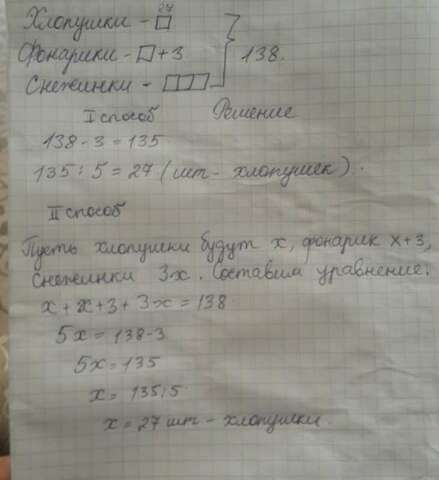 27
Хлопушки - □
Фонарики - □ + 3
Снежинки - □□□
138.
I способ Решение
138 - 3 = 135
135 : 5 = 27 (шт - хлопушек).
II способ
Пусть хлопушки будут x, фонарик x+3,
снежинки 3x. Составим уравнение:
x + x + 3 + 3x = 138
5x = 138-3
5x = 135
x = 135:5
x = 27 шт - хлопушки.